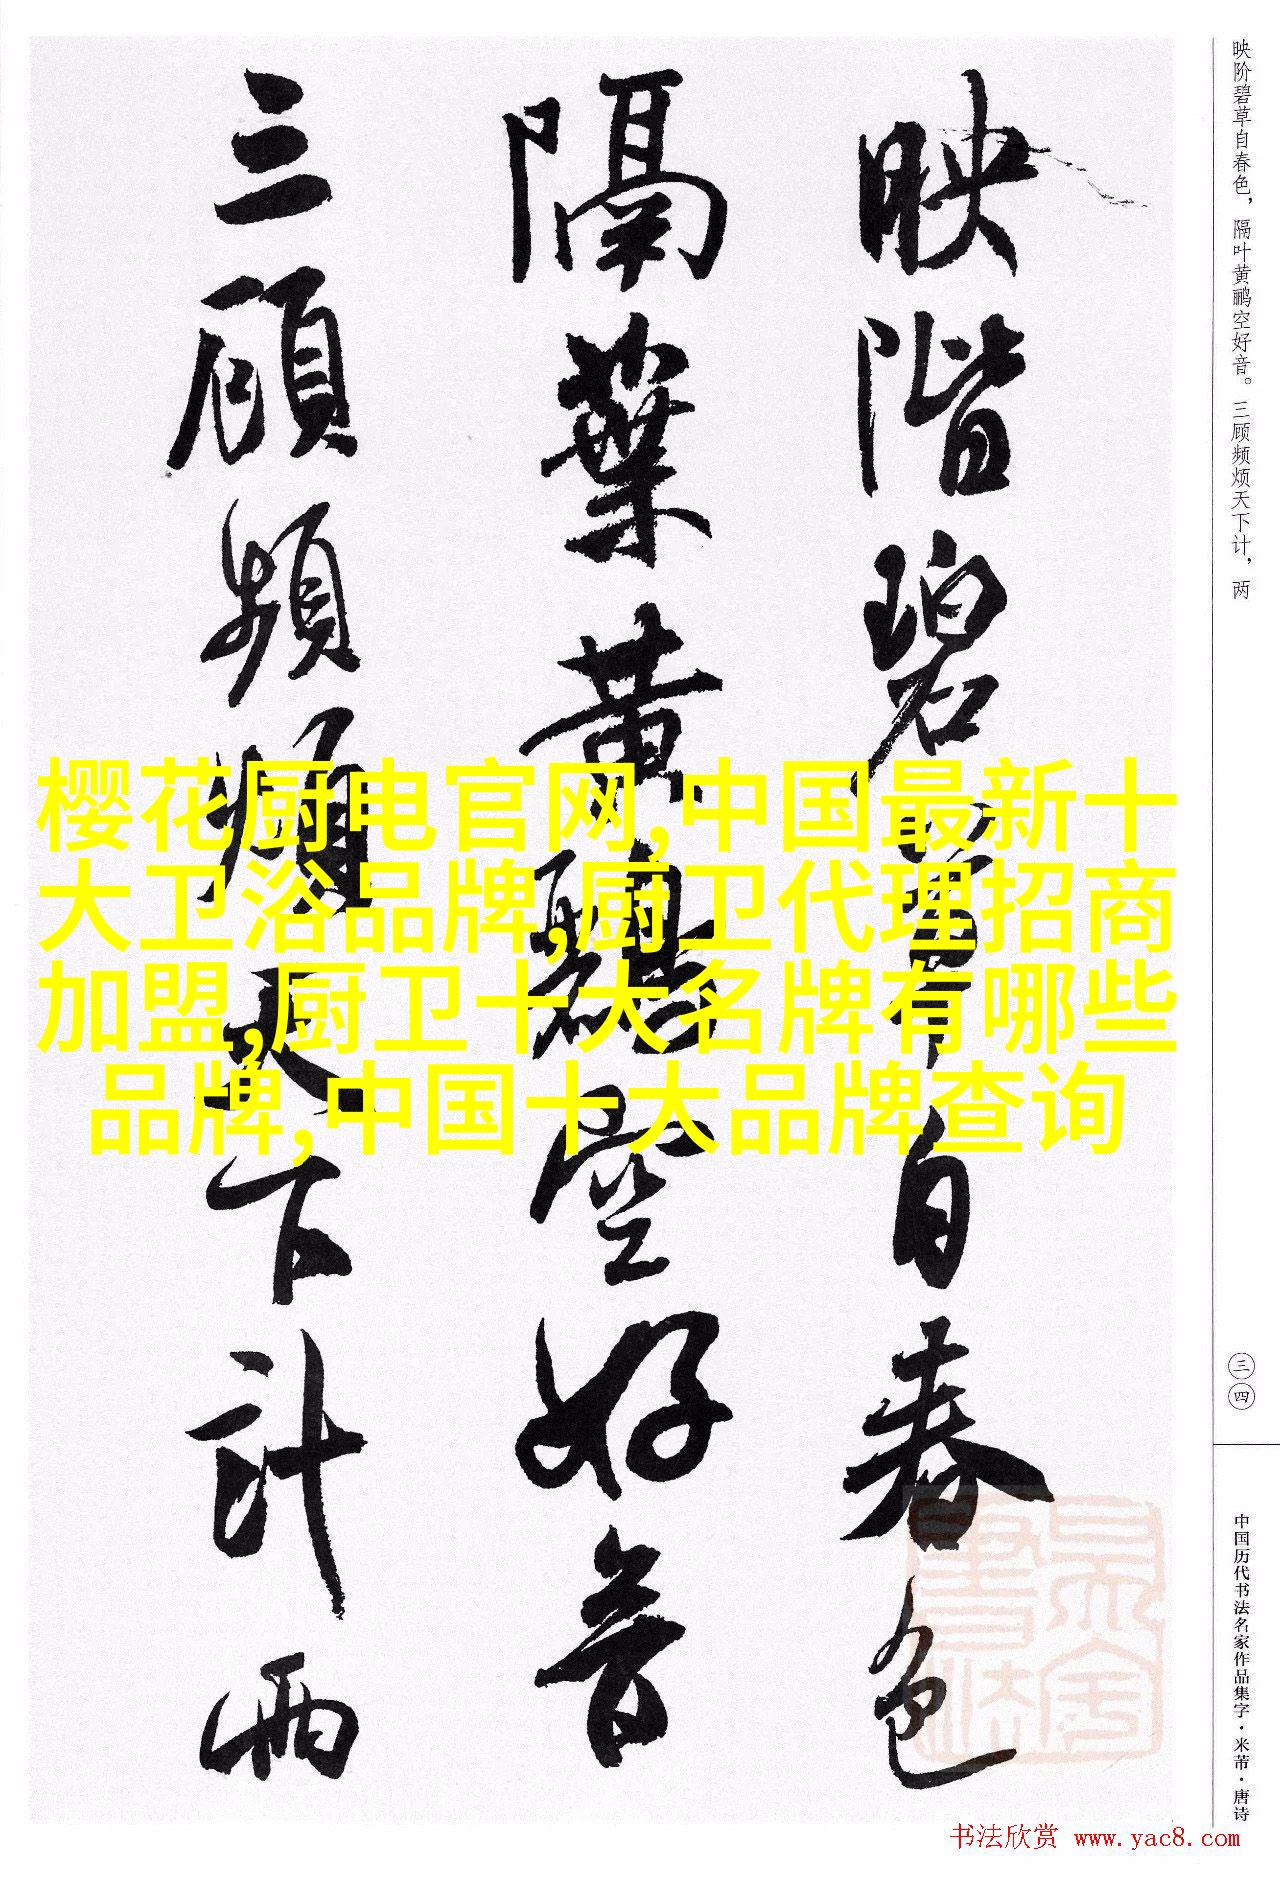 映階碧草自春色
隔葉黄鸝空好音
三顧頻煩天下計兩
映阶碧草自春色，隔叶黄鹂空好音。三顾频烦天下计，两
三四
中国历代书法名家作品集字·米芾·唐诗
樱花厨电官网,中国最新十
大卫浴品牌,厨卫代理招商
加盟,厨卫十大名牌有哪些
品牌,中国十大品牌查询
书法欣赏 www.yac8.com